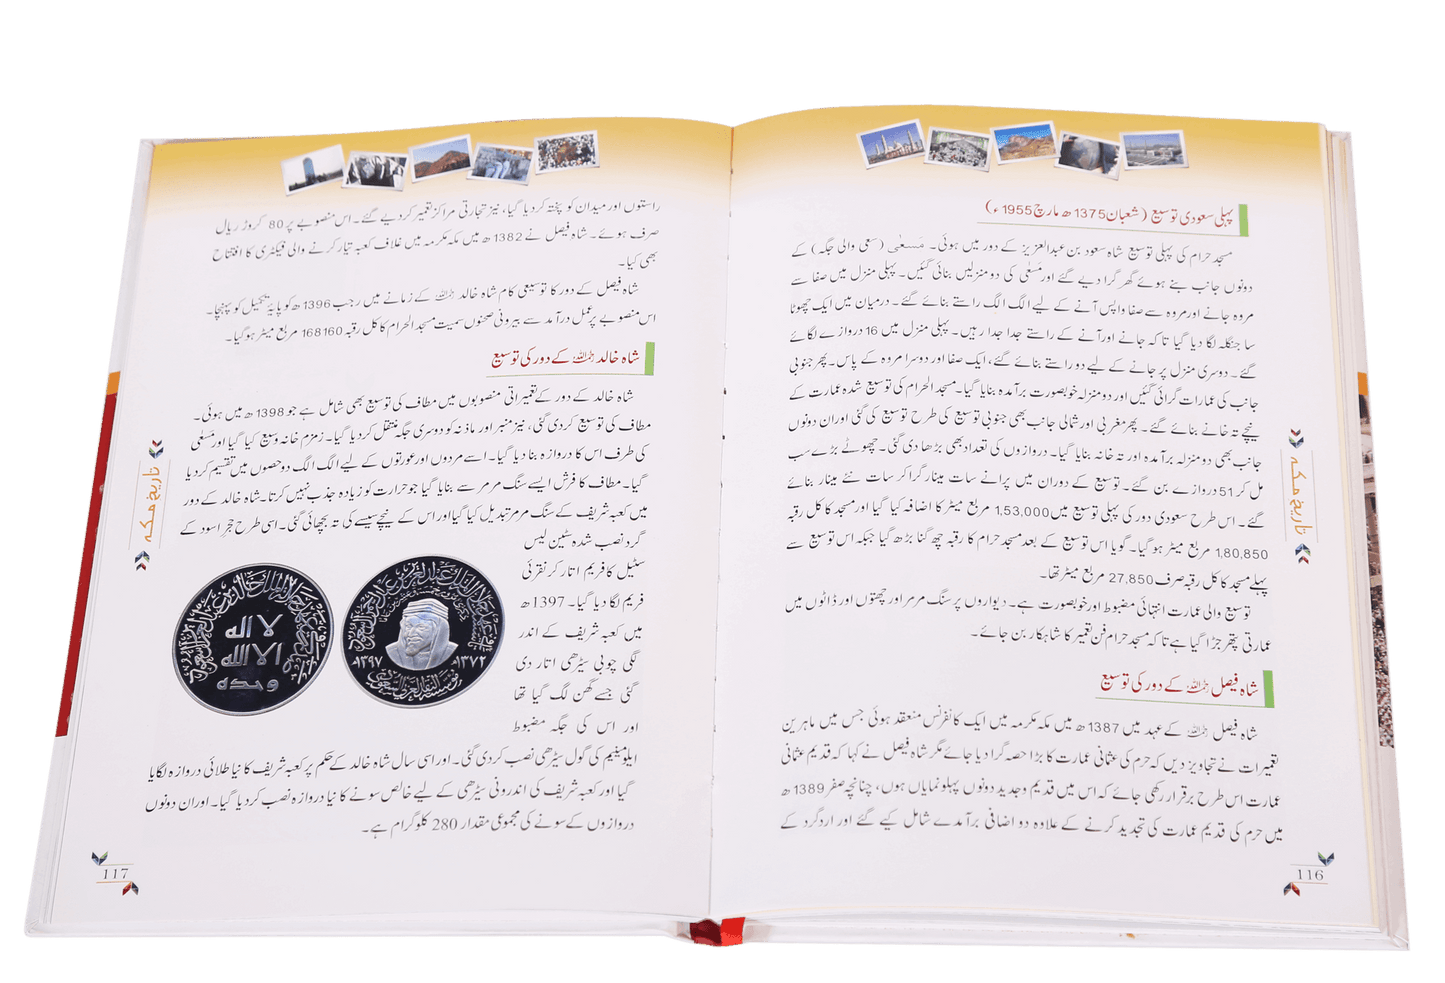 پہلی سعودی توسیع (شعبان 1375ھ مارچ 1955ء)
مسجد حرام کی پہلی توسیع شاہ سعود بن عبدالعزیز کے دور میں ہوئی۔ مَسعٰی (سعی والی جگہ) کے
دونوں جانب بنے ہوے گھر گرا دیے گئے اور مَسعٰی کی دو منزلیں بنائی گئیں۔ پہلی منزل میں صفا سے
مروہ جانے اور مروہ سے صفا واپس آنے کے لیے الگ الگ راستے بنائے گئے۔ درمیان میں ایک چھوٹا
سا جنگلہ لگا دیا گیا تاکہ جانے اور آنے کے راستے جدا جدا رہیں۔ پہلی منزل میں 16 دروازے لگائے
گئے۔ دوسری منزل پر جانے کے لیے دو راستے بنائے گئے، ایک صفا اور دوسرا مروہ کے پاس۔ پھر جنوبی
جانب کی عمارات گرائی گئیں اور دو منزلہ خوبصورت برآمدہ بنایا گیا۔ مسجد الحرام کی توسیع شدہ عمارت کے
نیچے تہ خانے بنائے گئے۔ پھر مغربی اور شمالی جانب بھی جنوبی توسیع کی طرح توسیع کی گئی اور ان دونوں
جانب بھی دو منزلہ برآمدہ اور تہ خانہ بنایا گیا۔ دروازوں کی تعداد بھی بڑھا دی گئی۔ چھوٹے بڑے سب
مل کر 51 دروازے بن گئے۔ توسیع کے دوران میں پرانے سات مینار گرا کر سات نئے مینار بنائے
گئے۔ اس طرح سعودی دور کی پہلی توسیع میں 1,53,000 مربع میٹر کا اضافہ کیا گیا اور مسجد کا کل رقبہ
1,80,850 مربع میٹر ہو گیا۔ گویا اس توسیع کے بعد مسجد حرام کا رقبہ چھ گنا بڑھ گیا جبکہ اس توسیع سے
پہلے مسجد کا کل رقبہ صرف 27,850 مربع میٹر تھا۔
توسیع والی عمارت انتہائی مضبوط اور خوبصورت ہے۔ دیواروں پر سنگ مرمر اور چھتوں اور ڈاٹوں میں
عمارتی پتھر جڑا گیا ہے تاکہ مسجد حرام فن تعمیر کا شاہکار بن جائے۔
شاہ فیصل رحمہ اللہ کے دور کی توسیع
شاہ فیصل رحمہ اللہ کے عہد میں 1387ھ میں مکہ مکرمہ میں ایک کانفرنس منعقد ہوئی جس میں ماہرین
تعمیرات نے تجاویز دیں کہ حرم کی عثمانی عمارت کا بڑا حصہ گرا دیا جائے مگر شاہ فیصل نے کہا کہ قدیم عثمانی
عمارت اس طرح برقرار رکھی جائے کہ اس میں قدیم و جدید دونوں پہلو نمایاں ہوں، چنانچہ صفر 1389ھ
میں حرم کی قدیم عمارت کی تجدید کرنے کے علاوہ دو اضافی برآمدے شامل کیے گئے اور اردگرد کے
تاریخ مکہ
116
راستوں اور میدان کو پختہ کر دیا گیا، نیز تجارتی مراکز تعمیر کر دیے گئے۔ اس منصوبے پر 80 کروڑ ریال
صرف ہوئے۔ شاہ فیصل نے 1382ھ میں مکہ مکرمہ میں غلاف کعبہ تیار کرنے والی فیکٹری کا افتتاح
بھی کیا۔
شاہ فیصل کے دور کا توسیعی کام شاہ خالد رحمہ اللہ کے زمانے میں رجب 1396ھ کو پایۂ تکمیل کو پہنچا۔
اس منصوبے پر عمل درآمد سے بیرونی صحنوں سمیت مسجد الحرام کا کل رقبہ 168160 مربع میٹر ہو گیا۔
شاہ خالد رحمہ اللہ کے دور کی توسیع
شاہ خالد کے دور کے تعمیراتی منصوبوں میں مطاف کی توسیع بھی شامل ہے جو 1398ھ میں ہوئی۔
مطاف کی توسیع کر دی گئی، نیز منبر اور ماذنہ کو دوسری جگہ منتقل کر دیا گیا۔ زمزم خانہ وسیع کیا گیا اور مَسعٰی
کی طرف اس کا دروازہ بنا دیا گیا۔ اسے مردوں اور عورتوں کے لیے الگ الگ دو حصوں میں تقسیم کر دیا
گیا۔ مطاف کا فرش ایسے سنگ مرمر سے بنایا گیا جو حرارت کو زیادہ جذب نہیں کرتا۔ شاہ خالد کے دور
میں کعبہ شریف کے سنگ مرمر تبدیل کیا گیا اور اس کے نیچے سیسے کی تہ بچھائی گئی۔ اسی طرح حجر اسود کے
گرد نصب شدہ سٹین لیس
سٹیل کا فریم اتار کر نقرئی
فریم لگا دیا گیا۔ 1397ھ
میں کعبہ شریف کے اندر
لگی چوبی سیڑھی اتار دی
گئی جسے گھن لگ گیا تھا
اور اس کی جگہ مضبوط
ایلومینیم کی گول سیڑھی نصب کر دی گئی۔ اور اسی سال شاہ خالد کے حکم پر کعبہ شریف کا نیا طلائی دروازہ لگایا
گیا اور کعبہ شریف کی اندرونی سیڑھی کے لیے خالص سونے کا نیا دروازہ نصب کر دیا گیا۔ اور ان دونوں
دروازوں کے سونے کی مجموعی مقدار 280 کلو گرام ہے۔
لا اله
الا الله
وحده
١٣٩٧ ١٣٧٢
مؤسسة النقد العربي السعودي
تاریخ مکہ
117